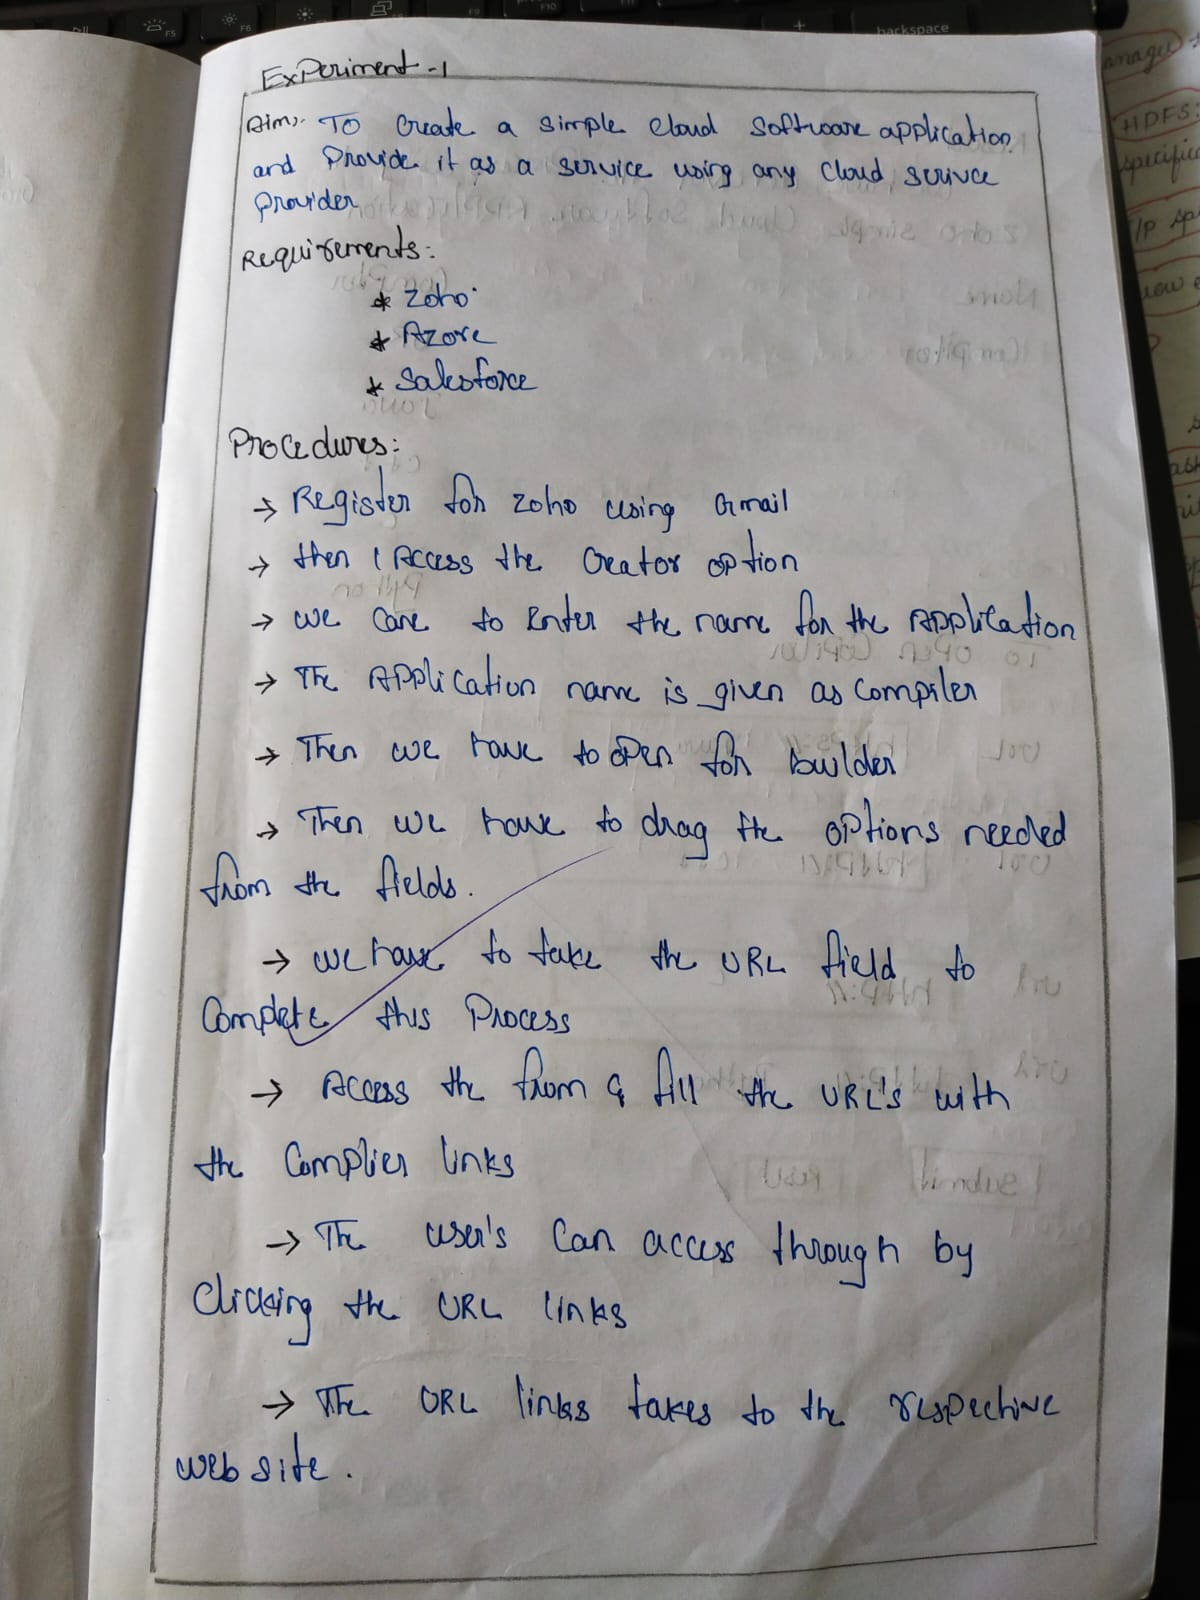 Experiment - 1
Aim:- To Create a simple Cloud Software application
and Provide it as a service using any Cloud serivce
Provider
Requirements:
* Zoho
* Azore
* Salesforce
Procedures:
→ Register for Zoho using Gmail
→ then Access the Creator option
→ we to Enter the name for the Application
→ The Application name is given as Compiler
→ Then we have to open for builder
→ Then we have to drag the options needed
from the fields.
→ we have to take the URL field to
Complete this Process
→ Access the from & fill the URL's with
the Complier links
→ The user's Can access through by
Clicking the URL links
→ The URL links takes to the respective
web site.
backspace
F5
F6
F9
F10
HDFS:
I/P